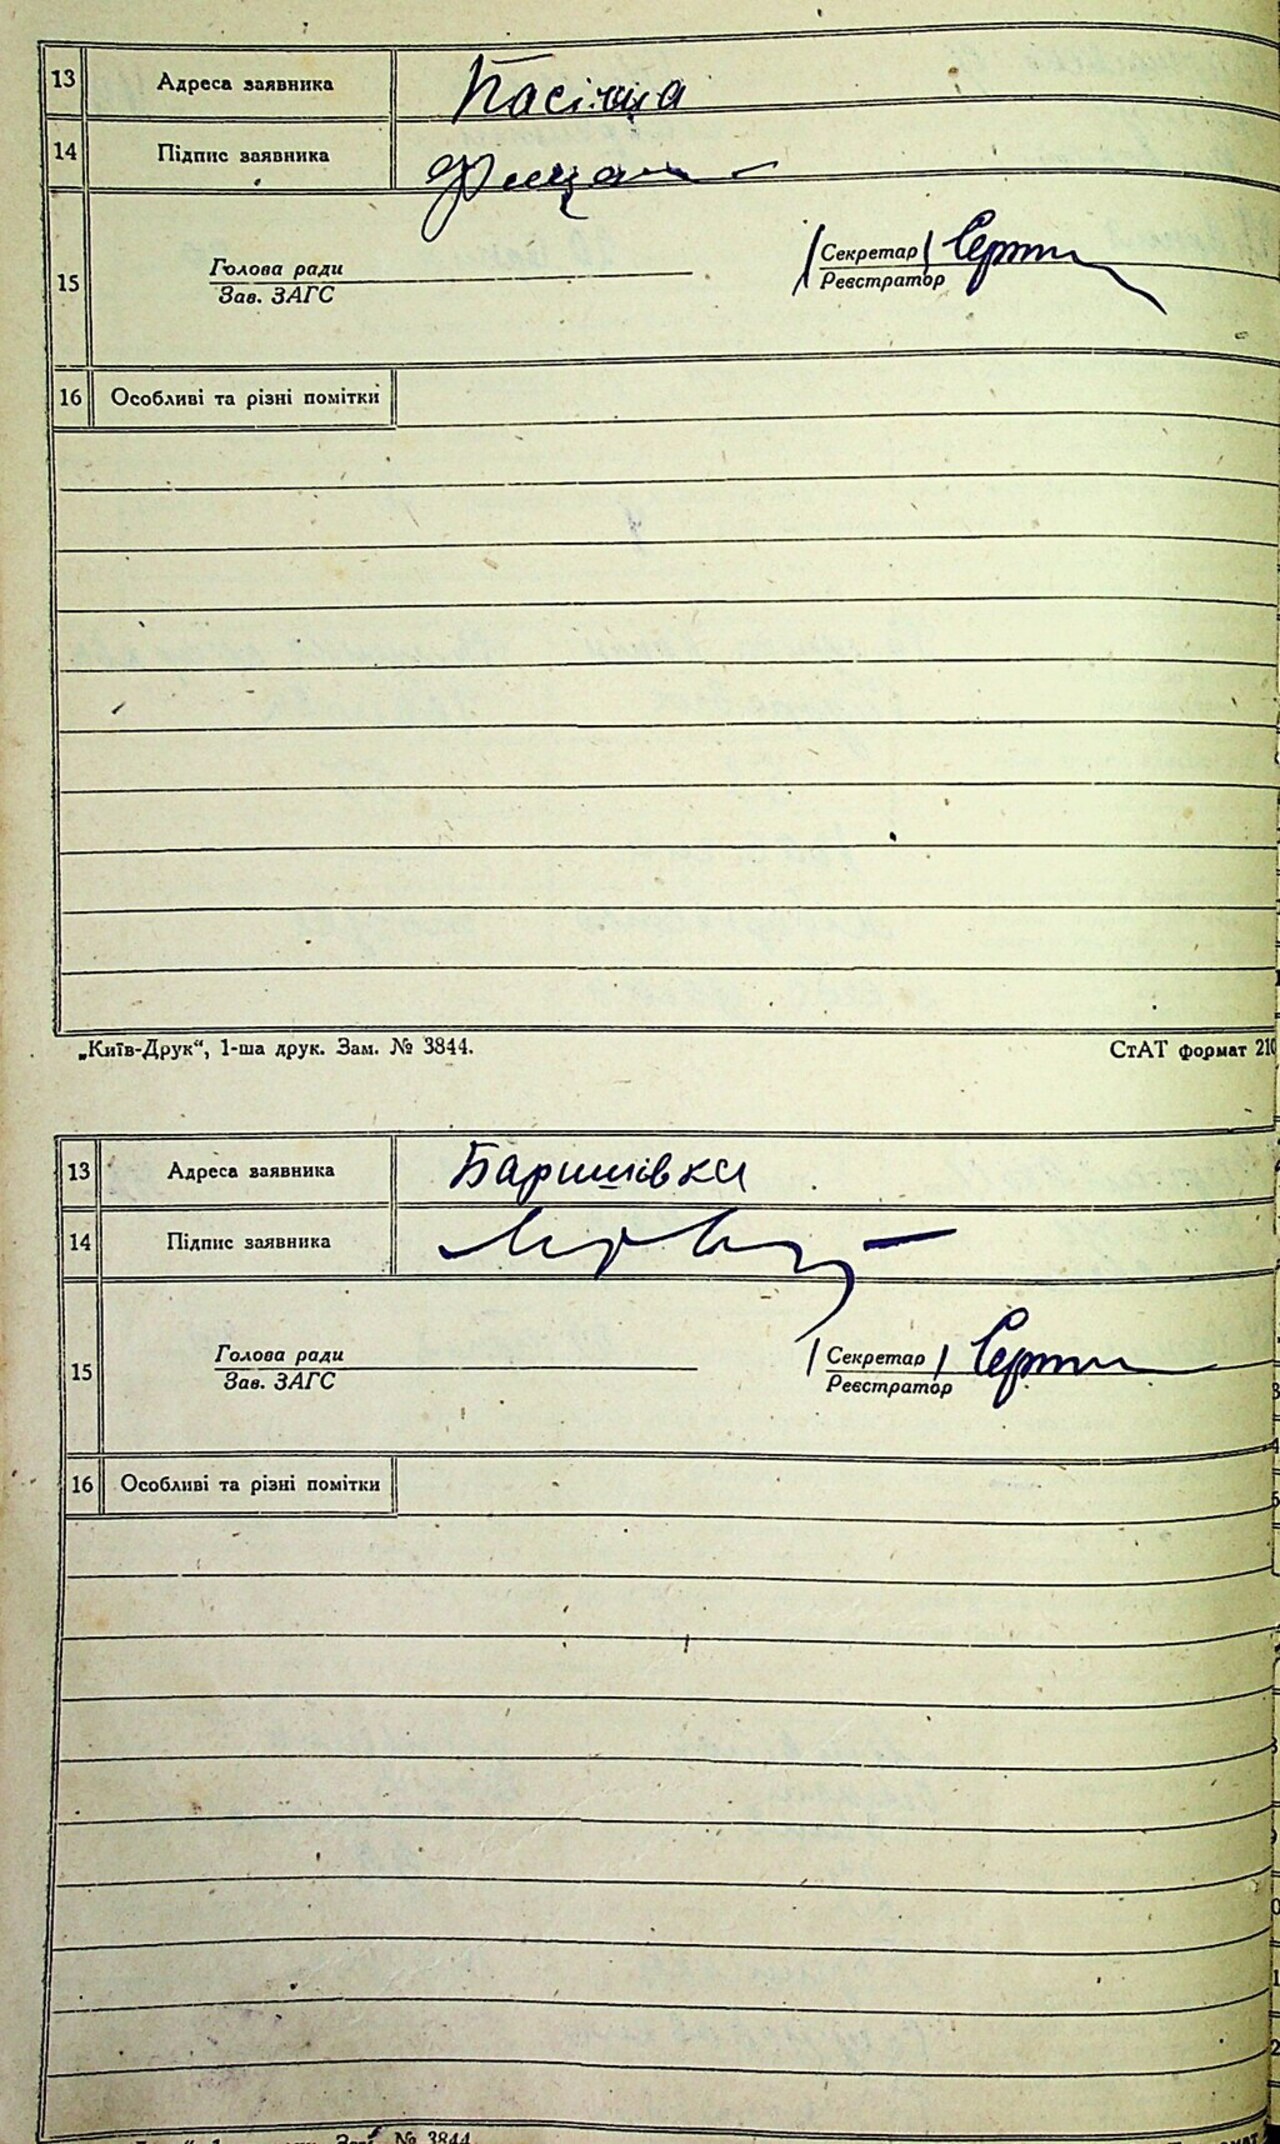 13 Адреса заявника
14 Підпис заявника
15 Голова ради Секретар
Зав. ЗАГС Реєстратор
16 Особливі та різні помітки
„Київ-Друк“, 1-ша друк. Зам. № 3844. СтАТ формат 210
13 Адреса заявника Баришівка
14 Підпис заявника
15 Голова ради Секретар
Зав. ЗАГС Реєстратор
16 Особливі та різні помітки
№ 3844.